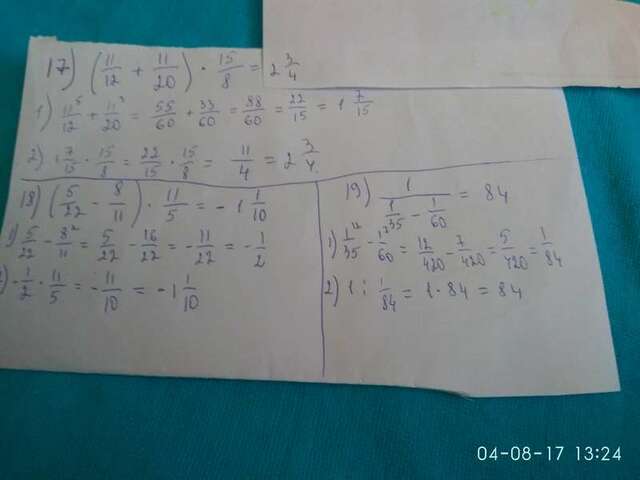 17) (11/12 + 11/20) · 15/8 = 2 3/4
1) 11⁵/12 + 11³/20 = 55/60 + 33/60 = 88/60 = 22/15 = 1 7/15
2) 1 7/15 · 15/8 = 22/15 · 15/8 = 11/4 = 2 3/4
18) (5/22 - 8/11) · 11/5 = -1 1/10
1) 5/22 - 8²/11 = 5/22 - 16/22 = -11/22 = -1/2
) -1/2 · 11/5 = -11/10 = -1 1/10
19) 1/(1/35 - 1/60) = 84
1) 1¹²/35 - 1⁷/60 = 12/420 - 7/420 = 5/420 = 1/84
2) 1 : 1/84 = 1 · 84 = 84
04-08-17 13:24